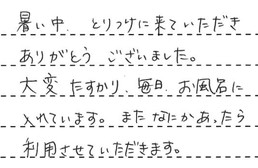 暑い中、とりつけに来ていただき
ありがとう ございました。
大変 たすかり、毎日、お風呂に
入れています。またなにかあったら
利用させていただきます。